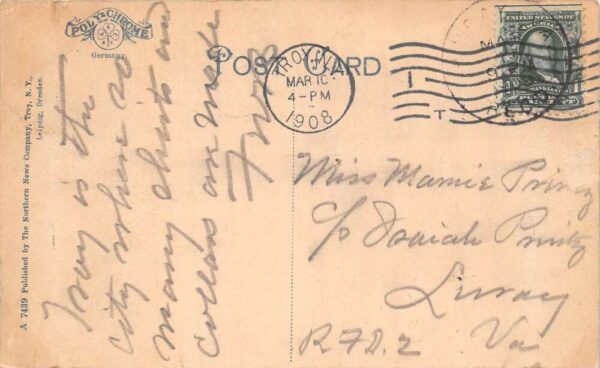 POLY-CHROME
Germany
POST CARD
TROY, N.Y.
MAR 10
4-PM
1908
1
T
UNITED STATES OF
AMERICA
A 7439 Published by The Northern News Company, Troy, N. Y.,
Leipzig, Dresden.
Troy is the
city where so
many shirts and
collars are made
Miss Mamie
c/o Isaiah
Luray
R F D. 2 Va